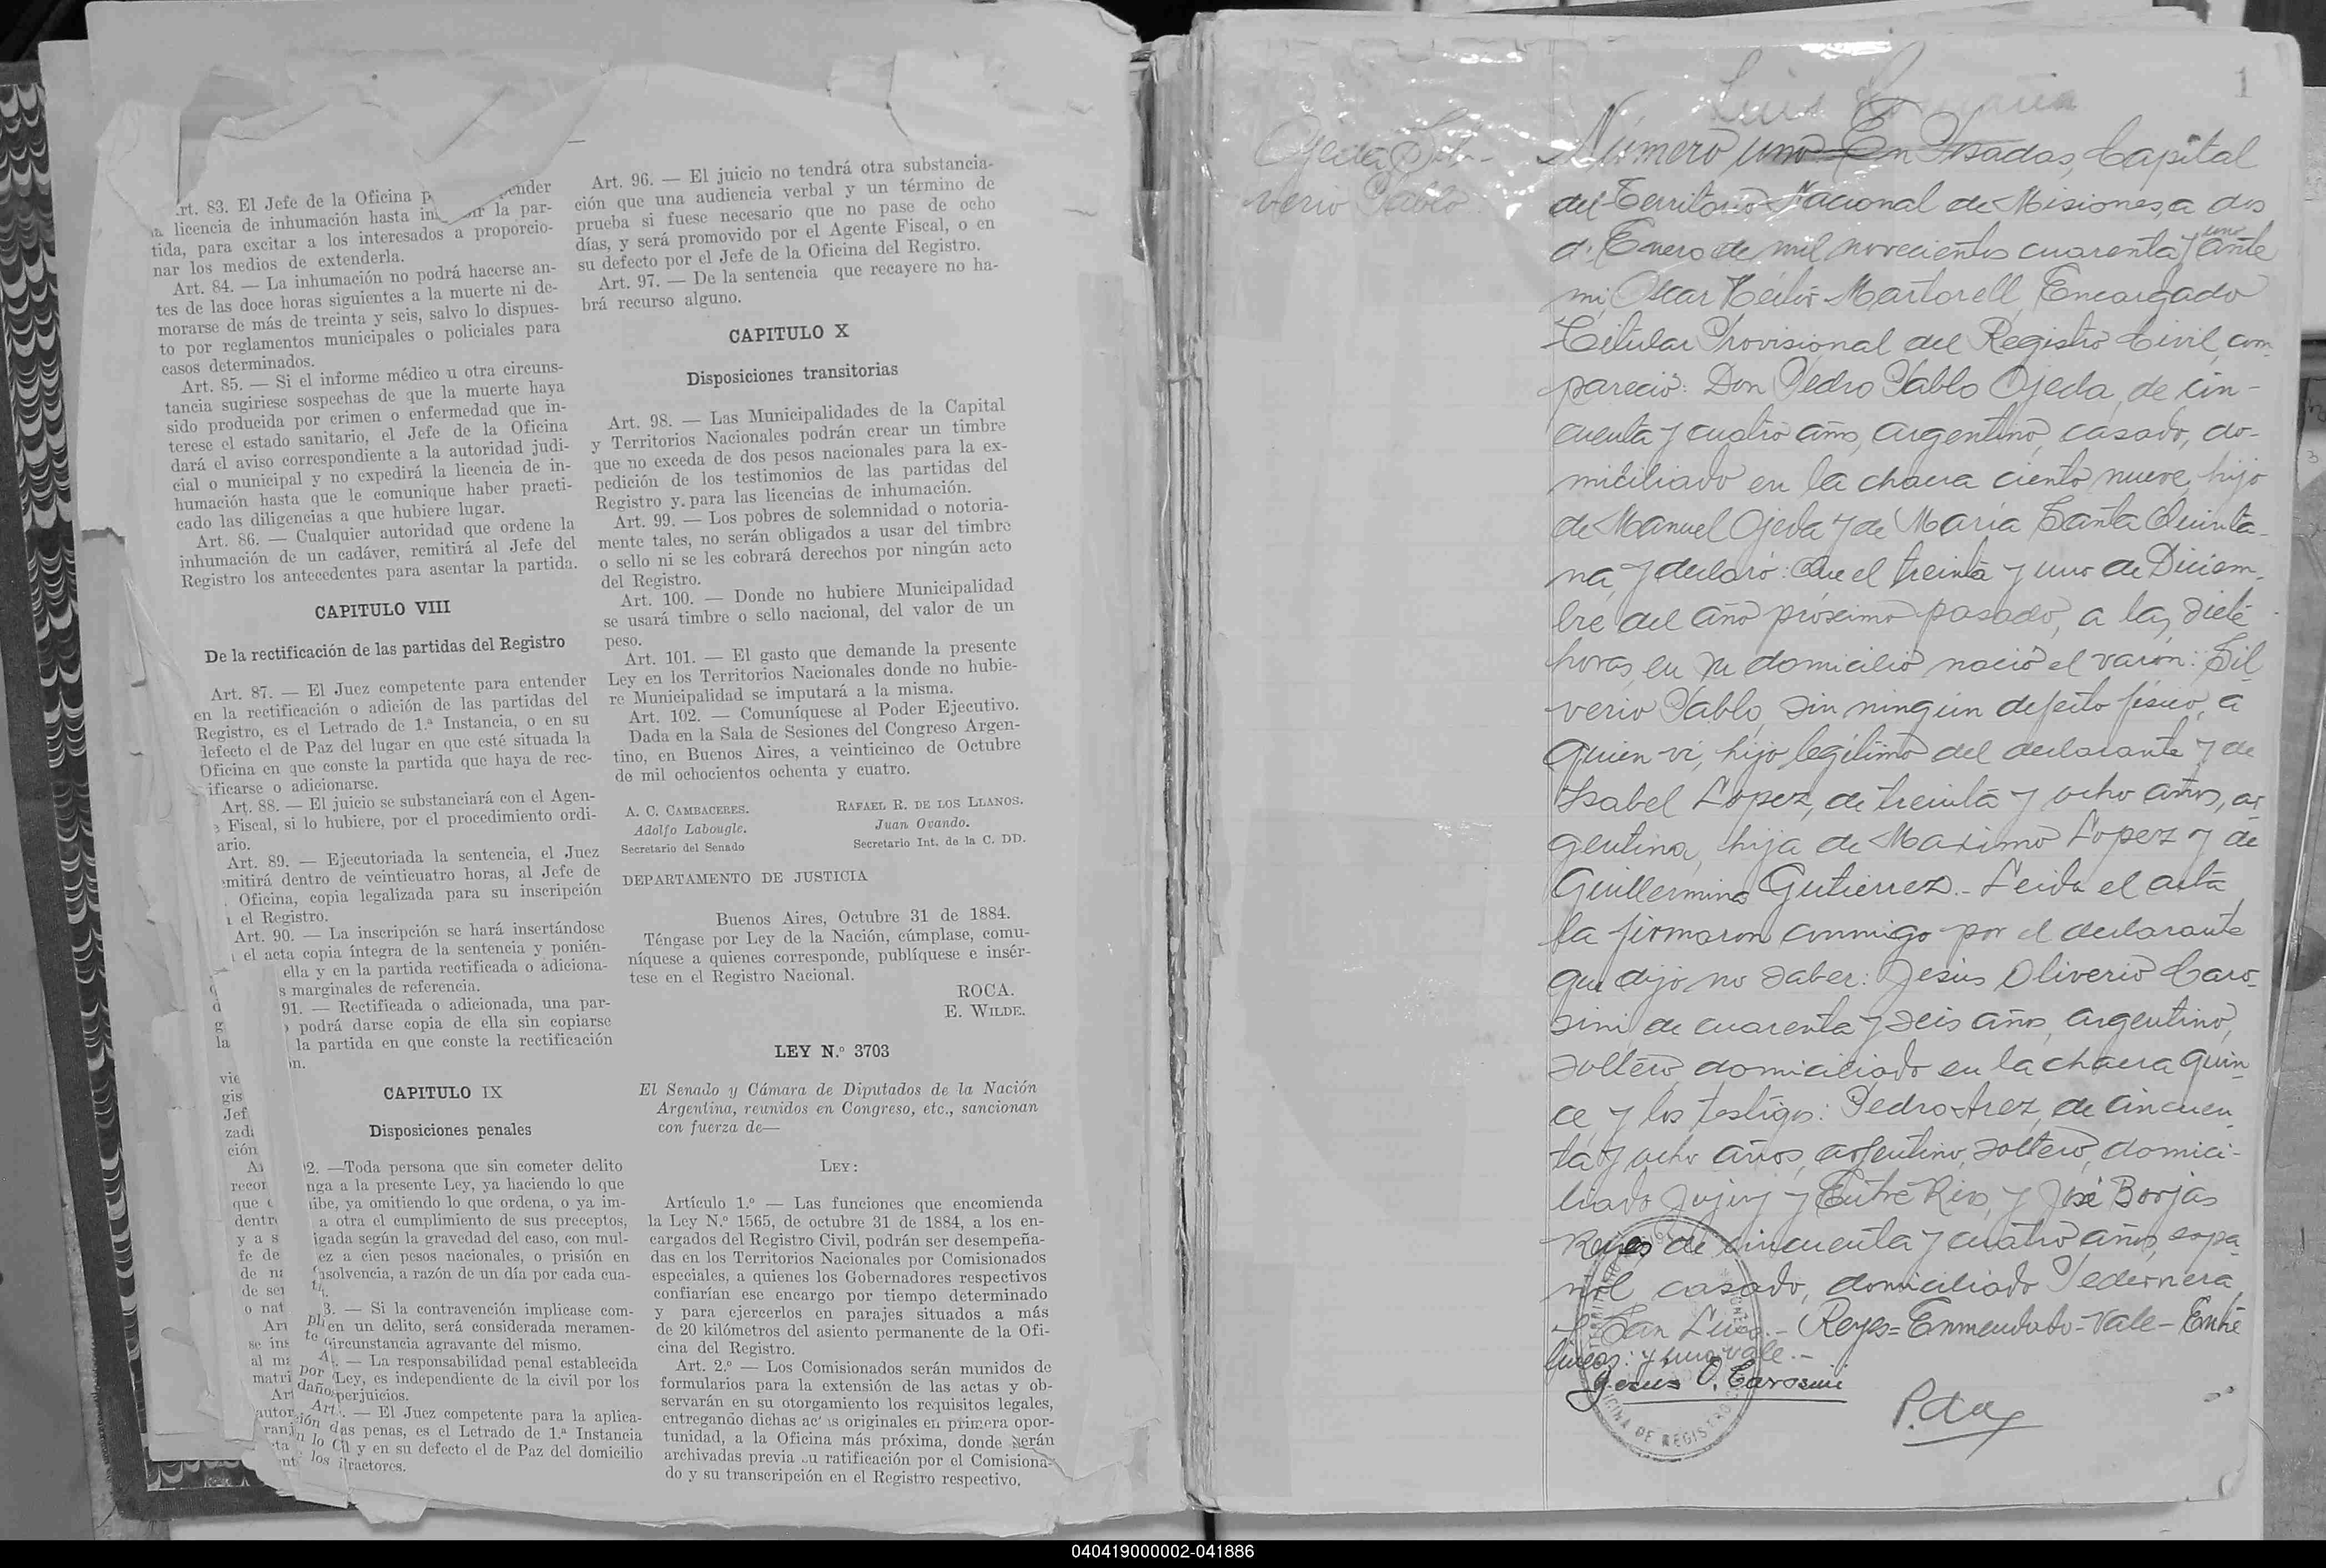 Art. 83. El Jefe de la Oficina
licencia de inhumación hasta la par-
tida, para excitar a los interesados a proporcio-
nar los medios de extenderla.
Art. 84. — La inhumación no podrá hacerse an-
tes de las doce horas siguientes a la muerte ni de-
morarse de más de treinta y seis, salvo lo dispues-
to por reglamentos municipales o policiales para
casos determinados.
Art. 85. — Si el informe médico u otra circuns-
tancia sugiriese sospechas de que la muerte haya
sido producida por crimen o enfermedad que in-
terese el estado sanitario, el Jefe de la Oficina
dará el aviso correspondiente a la autoridad judi-
cial o municipal y no expedirá la licencia de in-
humación hasta que le comunique haber practi-
cado las diligencias a que hubiere lugar.
Art. 86. — Cualquier autoridad que ordene la
inhumación de un cadáver, remitirá al Jefe del
Registro los antecedentes para asentar la partida.
CAPITULO VIII
De la rectificación de las partidas del Registro
Art. 87. — El Juez competente para entender
en la rectificación o adición de las partidas del
Registro, es el Letrado de 1.ª Instancia, o en su
defecto el de Paz del lugar en que esté situada la
Oficina en que conste la partida que haya de rec-
ificarse o adicionarse.
Art. 88. — El juicio se substanciará con el Agen-
Fiscal, si lo hubiere, por el procedimiento ordi-
ario.
Art. 89. — Ejecutoriada la sentencia, el Juez
mitirá dentro de veinticuatro horas, al Jefe de
Oficina, copia legalizada para su inscripción
el Registro.
Art. 90. — La inscripción se hará insertándose
el acta copia íntegra de la sentencia y ponién-
ella y en la partida rectificada o adiciona-
s marginales de referencia.
91. — Rectificada o adicionada, una par-
podrá darse copia de ella sin copiarse
la partida en que conste la rectificación
CAPITULO IX
Disposiciones penales
2. —Toda persona que sin cometer delito
nga a la presente Ley, ya haciendo lo que
ibe, ya omitiendo lo que ordena, o ya im-
a otra el cumplimiento de sus preceptos,
igada según la gravedad del caso, con mul-
ez a cien pesos nacionales, o prisión en
nsolvencia, a razón de un día por cada cua-
3. — Si la contravención implicase com-
en un delito, será considerada meramen-
circunstancia agravante del mismo.
— La responsabilidad penal establecida
Ley, es independiente de la civil por los
perjuicios.
— El Juez competente para la aplica-
as penas, es el Letrado de 1.ª Instancia
y en su defecto el de Paz del domicilio
Art. 96. — El juicio no tendrá otra substancia-
ción que una audiencia verbal y un término de
prueba si fuese necesario que no pase de ocho
días, y será promovido por el Agente Fiscal, o en
su defecto por el Jefe de la Oficina del Registro.
Art. 97. — De la sentencia que recayere no ha-
brá recurso alguno.
CAPITULO X
Disposiciones transitorias
Art. 98. — Las Municipalidades de la Capital
y Territorios Nacionales podrán crear un timbre
que no exceda de dos pesos nacionales para la ex-
pedición de los testimonios de las partidas del
Registro y para las licencias de inhumación.
Art. 99. — Los pobres de solemnidad o notoria-
mente tales, no serán obligados a usar del timbre
o sello ni se les cobrará derechos por ningún acto
del Registro.
Art. 100. — Donde no hubiere Municipalidad
se usará timbre o sello nacional, del valor de un
peso.
Art. 101. — El gasto que demande la presente
Ley en los Territorios Nacionales donde no hubie-
re Municipalidad se imputará a la misma.
Art. 102. — Comuníquese al Poder Ejecutivo.
Dada en la Sala de Sesiones del Congreso Argen-
tino, en Buenos Aires, a veinticinco de Octubre
de mil ochocientos ochenta y cuatro.
A. C. CAMBACERES. RAFAEL R. DE LOS LLANOS.
Adolfo Labougle. Juan Ovando.
Secretario del Senado Secretario Int. de la C. DD.
DEPARTAMENTO DE JUSTICIA
Buenos Aires, Octubre 31 de 1884.
Téngase por Ley de la Nación, cúmplase, comu-
níquese a quienes corresponde, publíquese e insér-
tese en el Registro Nacional.
ROCA.
E. WILDE.
LEY N.º 3703
El Senado y Cámara de Diputados de la Nación
Argentina, reunidos en Congreso, etc., sancionan
con fuerza de—
LEY:
Artículo 1.º — Las funciones que encomienda
la Ley N.º 1565, de octubre 31 de 1884, a los en-
cargados del Registro Civil, podrán ser desempeña-
das en los Territorios Nacionales por Comisionados
especiales, a quienes los Gobernadores respectivos
confiarían ese encargo por tiempo determinado
y para ejercerlos en parajes situados a más
de 20 kilómetros del asiento permanente de la Ofi-
cina del Registro.
Art. 2.º — Los Comisionados serán munidos de
formularios para la extensión de las actas y ob-
servarán en su otorgamiento los requisitos legales,
entregando dichas actas originales en primera opor-
tunidad, a la Oficina más próxima, donde serán
archivadas previa su ratificación por el Comisiona-
do y su transcripción en el Registro respectivo.
1
Luis
Ojeda Sil-
verio Pablo
Número uno En Posadas, Capital
del Territorio Nacional de Misiones, a dos
de Enero de mil novecientos cuarenta y uno ante
mi, Oscar Héctor Martorell, Encargado
Titular Provisional del Registro Civil, com-
pareció: Don Pedro Pablo Ojeda, de cin-
cuenta y cuatro años, argentino, casado, do-
miciliado en la chacra ciento nueve, hijo
de Manuel Ojeda y de María Santa Quinta-
na, y declaró: Que el treinta y uno de Diciem-
bre del año próximo pasado, a las siete
horas, en su domicilio nació el varón: Sil
verio Pablo, sin ningún defecto físico, a
quien ví, hijo legítimo del declarante y de
Isabel López, de treinta y ocho años, ar
gentina, hija de Maximo Lopez y de
Guillermina Gutierrez.- Leida el acta,
la firmaron conmigo por el declarante
que dijo no saber: Jesús Oliverio Caro-
sini, de cuarenta y seis años, argentino,
soltero, domiciliado en la chacra quin-
ce, y los testigos: Pedro de cincuen-
ta y ocho años, argentino, soltero, domici-
liado Jujuy y Entre Ríos, y José Borjas
Reyes de cincuenta y cuatro años, espa-
ñol, casado, domiciliado Pedernera
y San Luis.- Reyes=Enmendado-Vale-Entre
líneas: y uno vale.-
Jesus O. Carosini
OFICINA DE REGISTRO
040419000002-041886